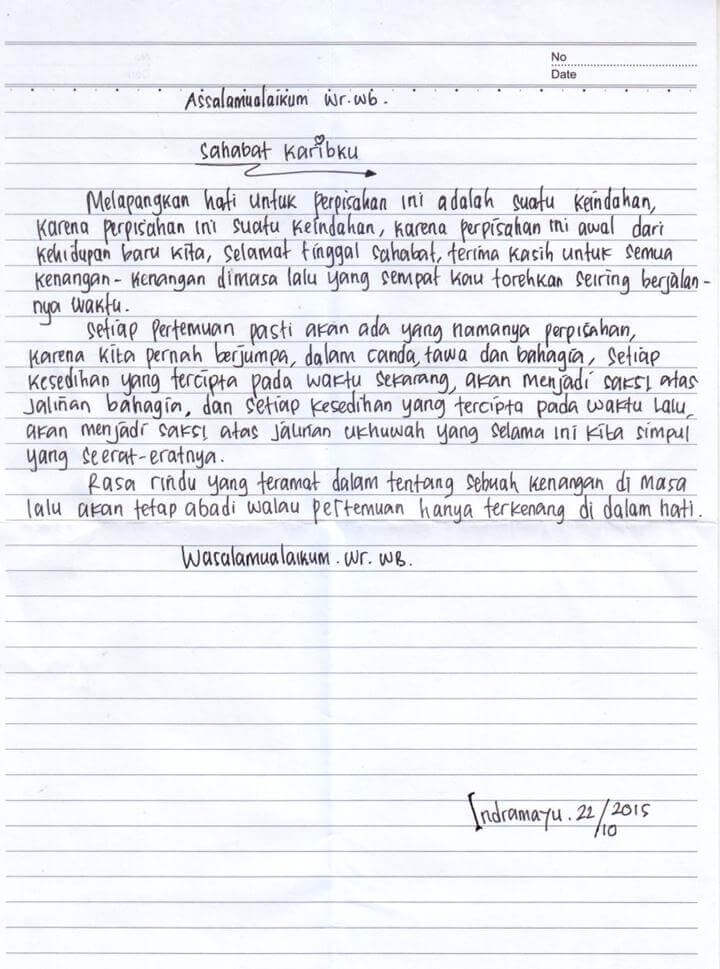 No
Date
Assalamualaikum Wr. Wb.
Sahabat Karibku
Melapangkan hati untuk perpisahan ini adalah suatu keindahan,
karena perpisahan ini suatu keindahan, karena perpisahan ini awal dari
kehidupan baru kita, selamat tinggal sahabat, terima kasih untuk semua
kenangan-kenangan dimasa lalu yang sempat kau torehkan seiring berjalan-
nya waktu.
Setiap pertemuan pasti akan ada yang namanya perpisahan,
karena kita pernah berjumpa, dalam canda, tawa dan bahagia, setiap
kesedihan yang tercipta pada waktu sekarang, akan menjadi saksi atas
jalinan bahagia, dan setiap kesedihan yang tercipta pada waktu lalu,
akan menjadi saksi atas jalinan ukhuwah yang selama ini kita simpul
yang seerat-eratnya.
Rasa rindu yang teramat dalam tentang sebuah kenangan di masa
lalu akan tetap abadi walau pertemuan hanya terkenang di dalam hati.
Wasalamualaikum. Wr. WB.
Indramayu. 22/10 2015